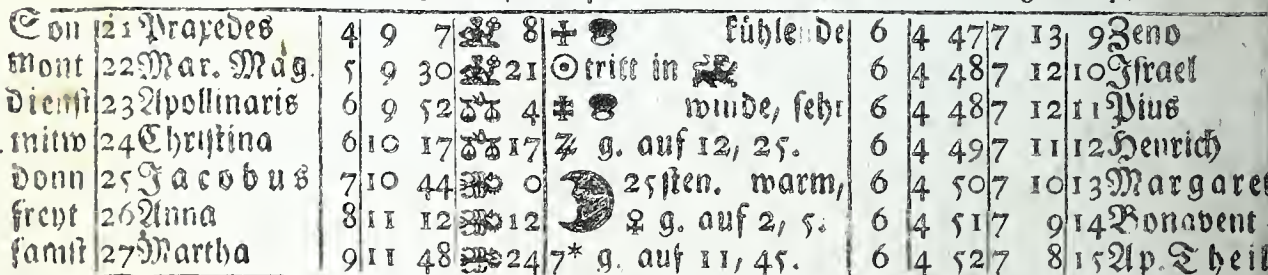 Son 21 Praxedes 4 9 7 8 kühlende 6 4 47 7 13 9 Zeno
mont 22 Mar. Mag. 5 9 30 21 ☉ tritt in 6 4 48 7 12 10 Israel
dienst 23 Apollinaris 6 9 52 4 winde, sehr 6 4 48 7 12 11 Pius
mitw 24 Christina 6 10 17 17 ♃ g. auf 12, 25. 6 4 49 7 11 12 Henrich
donn 25 Jacobus 7 10 44 0 25sten. warm, 6 4 50 7 10 13 Margaret
freyt 26 Anna 8 11 12 12 ♀ g. auf 2, 5. 6 4 51 7 9 14 Bonavent
samst 27 Martha 9 11 48 24 7* g. auf 11, 45. 6 4 52 7 8 15 Ap. Theil